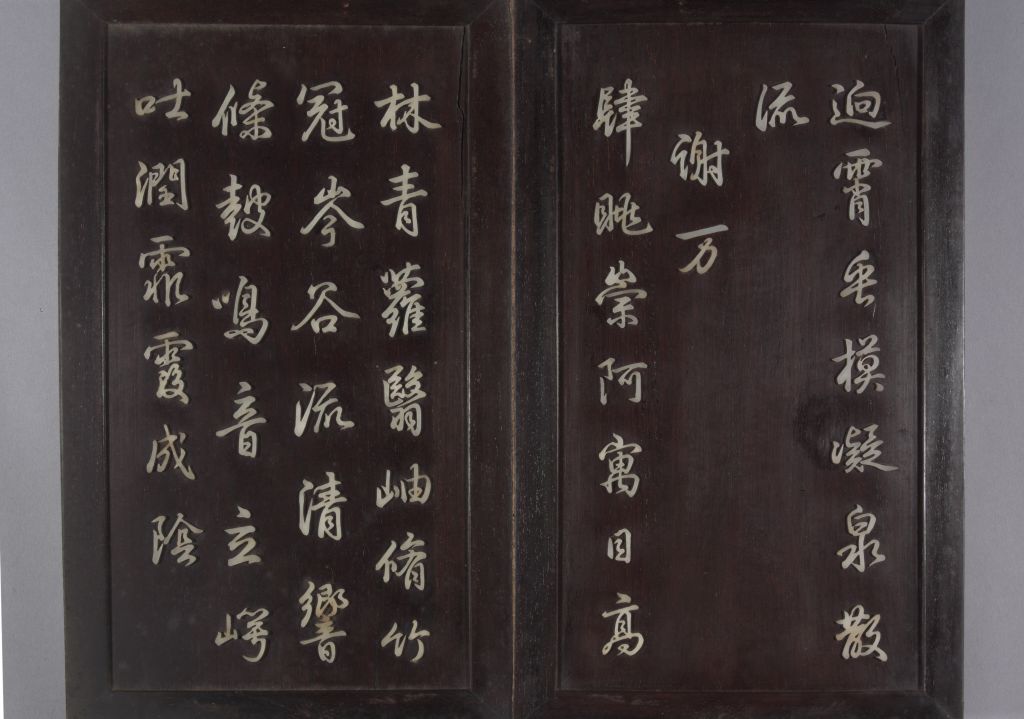 迥霄垂模凝泉散
流
謝万
肆眺崇阿寓目高
林青蘿翳岫脩竹
冠岑谷流清響
條鼓鳴音玄崿
吐潤霏霞成陰